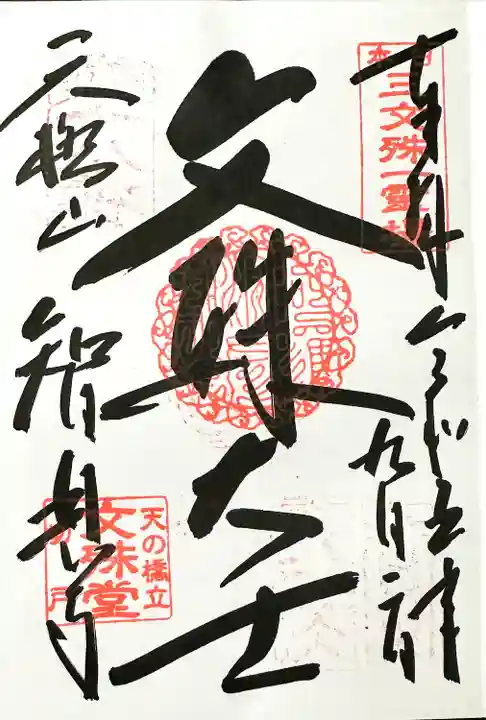 奉拝 令和五年
九月
日本
三文殊一霊場
文殊大士
天橋山 智恩寺
天の橋立
文殊堂
切戸